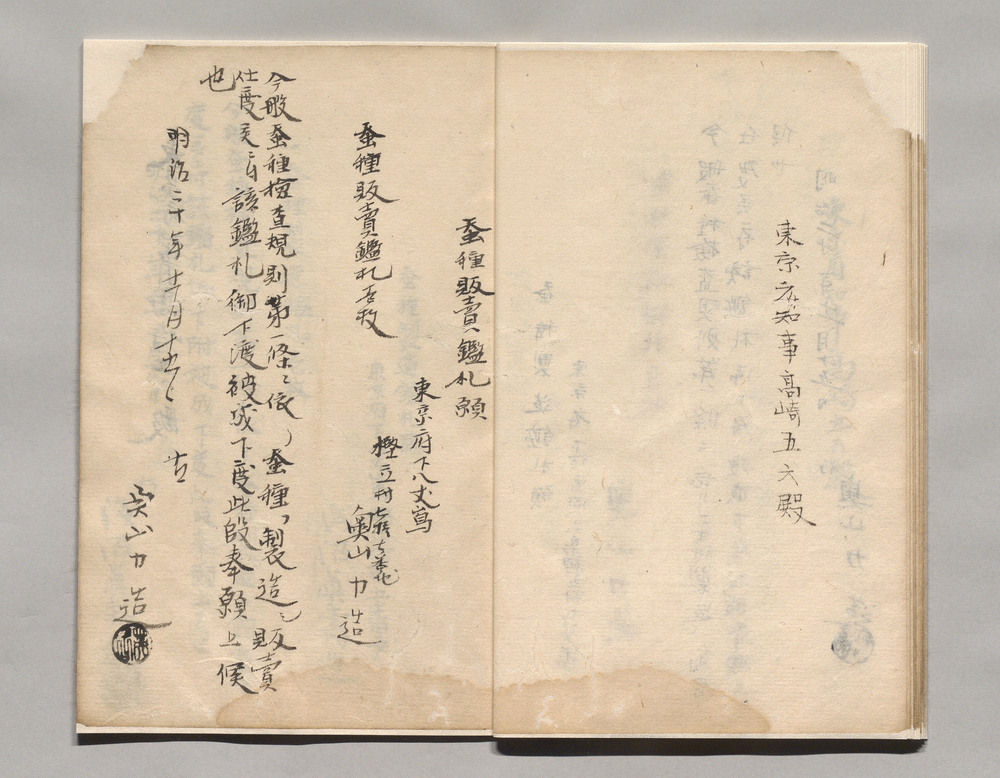 東京府知事高崎五六殿
蚕種販賣鑑札願
東京府下八丈嶌
樫立村
奥山力造
蚕種販賣鑑札壱枚
今般蚕種檢査規則第一條ニ依リ蚕種ノ製造ニ販賣
仕度候ニ付該鑑札御下渡被成下度此段奉願上候
也
明治二十年十月十五日 右
奥山力造